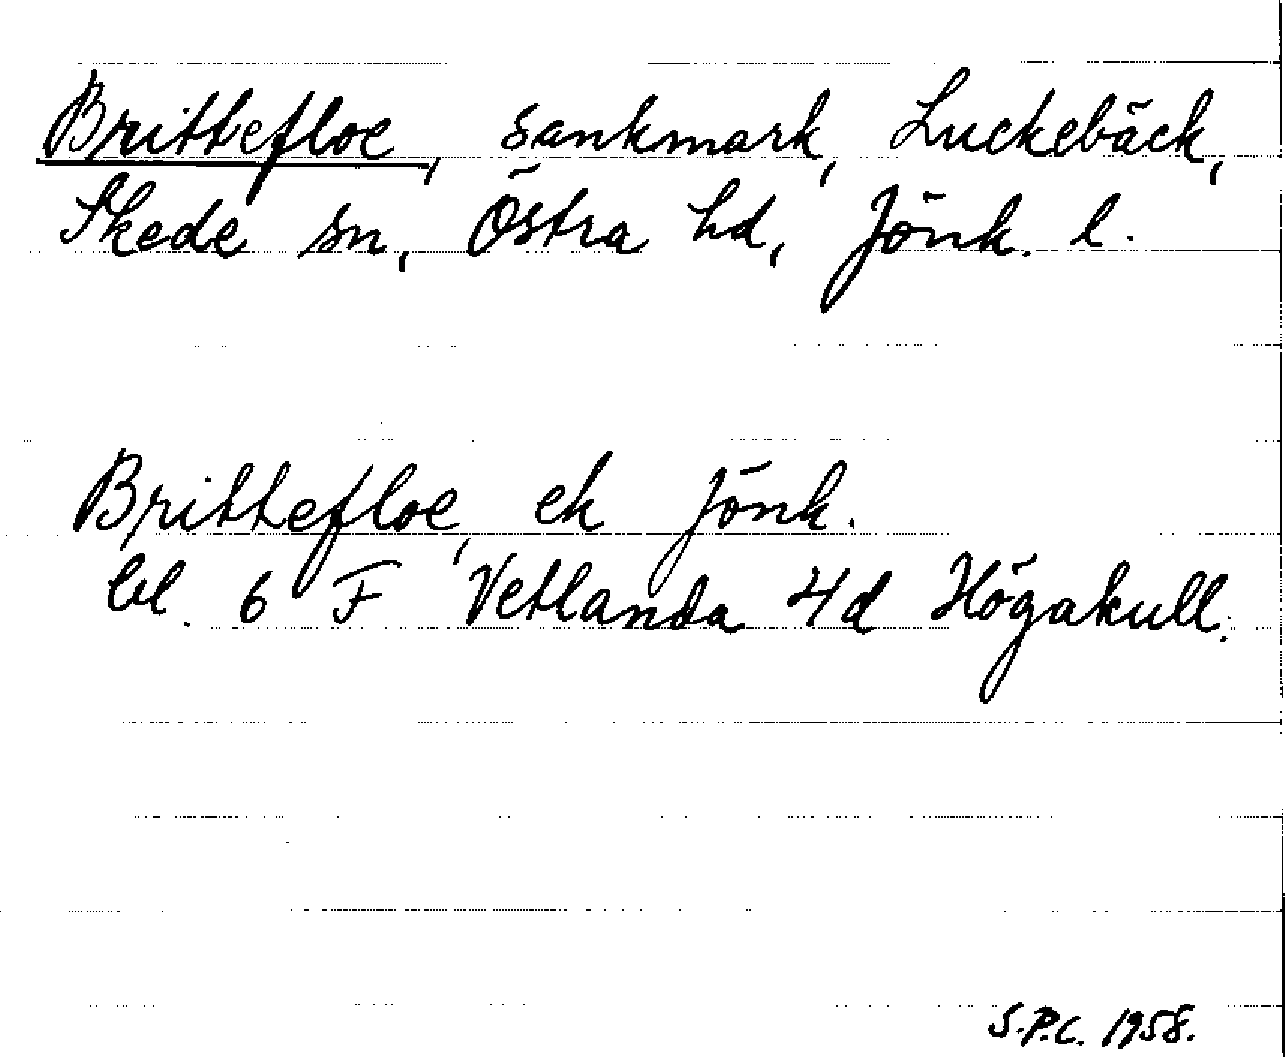 Brittefloe, sankmark, Luckebäck,
Skede sn, Östra hd, Jönk. l.
Brittefloe, ek Jönk.
bl. 6 F Vetlanda 4d Högakull.
S.P.C. 1958.